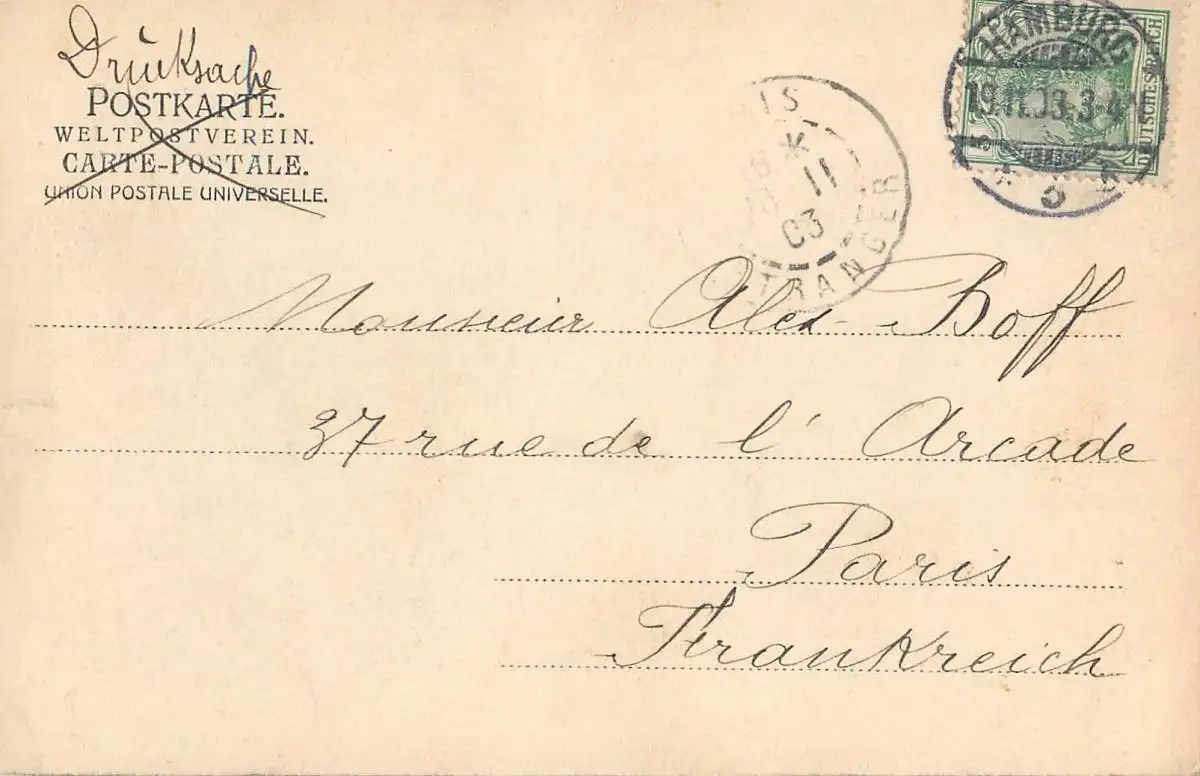 Drucksache
POSTKARTE.
WELTPOSTVEREIN.
CARTE-POSTALE.
UNION POSTALE UNIVERSELLE.
IS
11
03
TRANGER
HAMBURG
19.11.03.3-4
5
DEUTSCHES REICH
Monsieur Alex Boff
37 rue de l'Arcade
Paris
Frankreich